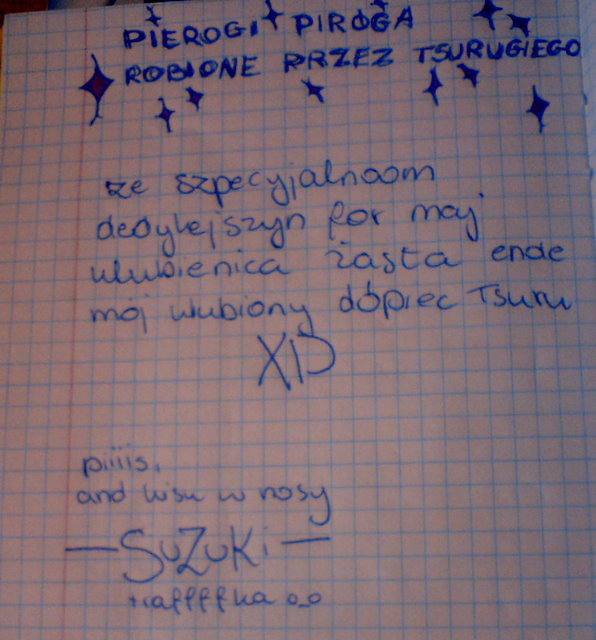 PIEROGI PIROGA
ROBIONE PRZEZ TSURUGIEGO
ze szpecyjalnoom
dedykejszyn for maj
ulubienica żasta ende
mój ulubiony dópiec Tsuru
XD
piiiis.
and kisu w nosy
—SuZuKi—